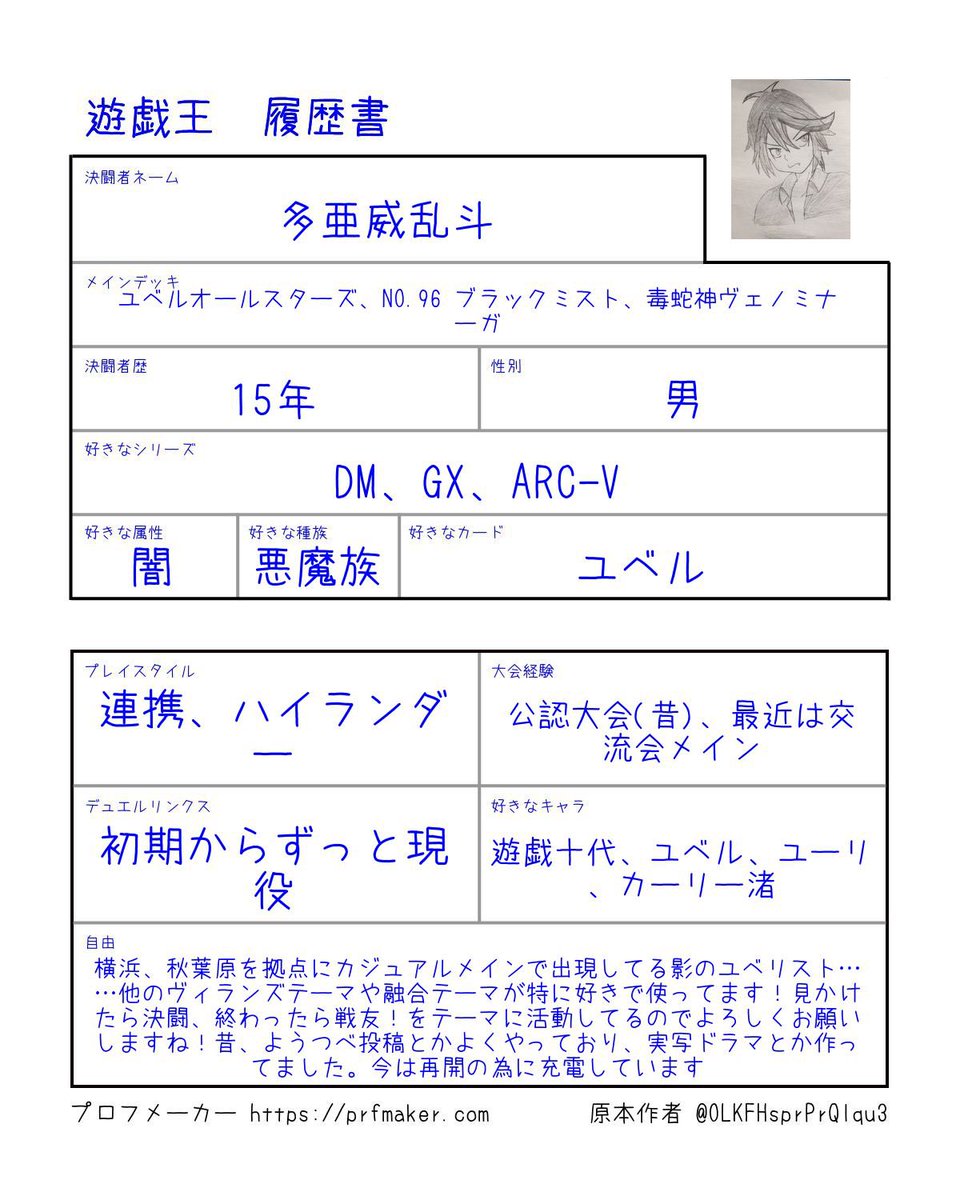 遊戯王　履歴書
決闘者ネーム
多亜威乱斗
メインデッキ
ユベルオールスターズ、NO.96 ブラックミスト、毒蛇神ヴェノミナ
ーガ
決闘者歴
15年
性別
男
好きなシリーズ
DM、GX、ARC-V
好きな属性
闇
好きな種族
悪魔族
好きなカード
ユベル
プレイスタイル
連携、ハイランダ
ー
大会経験
公認大会(昔)、最近は交
流会メイン
デュエルリンクス
初期からずっと現
役
好きなキャラ
遊戯十代、ユベル、ユーリ
、カーリー渚
自由
横浜、秋葉原を拠点にカジュアルメインで出現してる影のユベリスト…
…他のヴィランズテーマや融合テーマが特に好きで使ってます！見かけ
たら決闘、終わったら戦友！をテーマに活動してるのでよろしくお願い
しますね！昔、ようつべ投稿とかよくやっており、実写ドラマとか作っ
てました。今は再開の為に充電しています
プロフメーカー https://prfmaker.com
原本作者 @OLKFHsprPrQlqu3